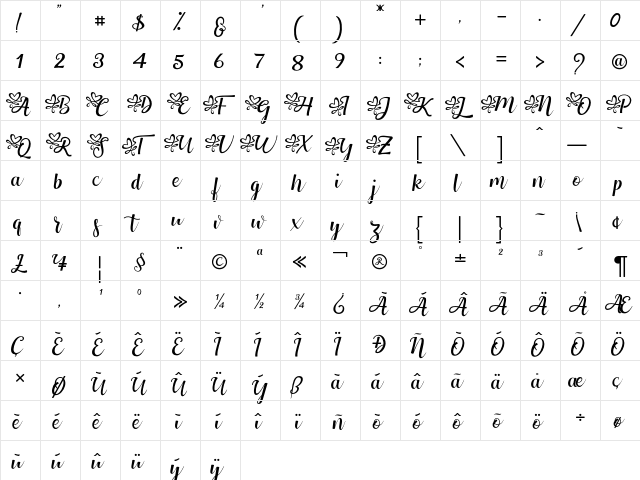 ! " # $ % & ' ( ) * + , - . / 0
1 2 3 4 5 6 7 8 9 : ; < = > ? @
A B C D E F G H I J K L M N O P
Q R S T U V W X Y Z [ \ ] ^ — `
a b c d e f g h i j k l m n o p
q r s t u v w x y z { | } ~ ¢
£ ¥ ¦ § ¨ © ª « ¬ ® ° ± ² ³ ´ ¶
· ¸ ¹ º » ¼ ½ ¾ ¿ À Á Â Ã Ä Å Æ
Ç È É Ê Ë Ì Í Î Ï Ð Ñ Ò Ó Ô Õ Ö
× Ø Ù Ú Û Ü Ý ß à á â ã ä å æ ç
è é ê ë ì í î ï ñ ò ó ô õ ö ÷ ø
ù ú û ü ý ÿ